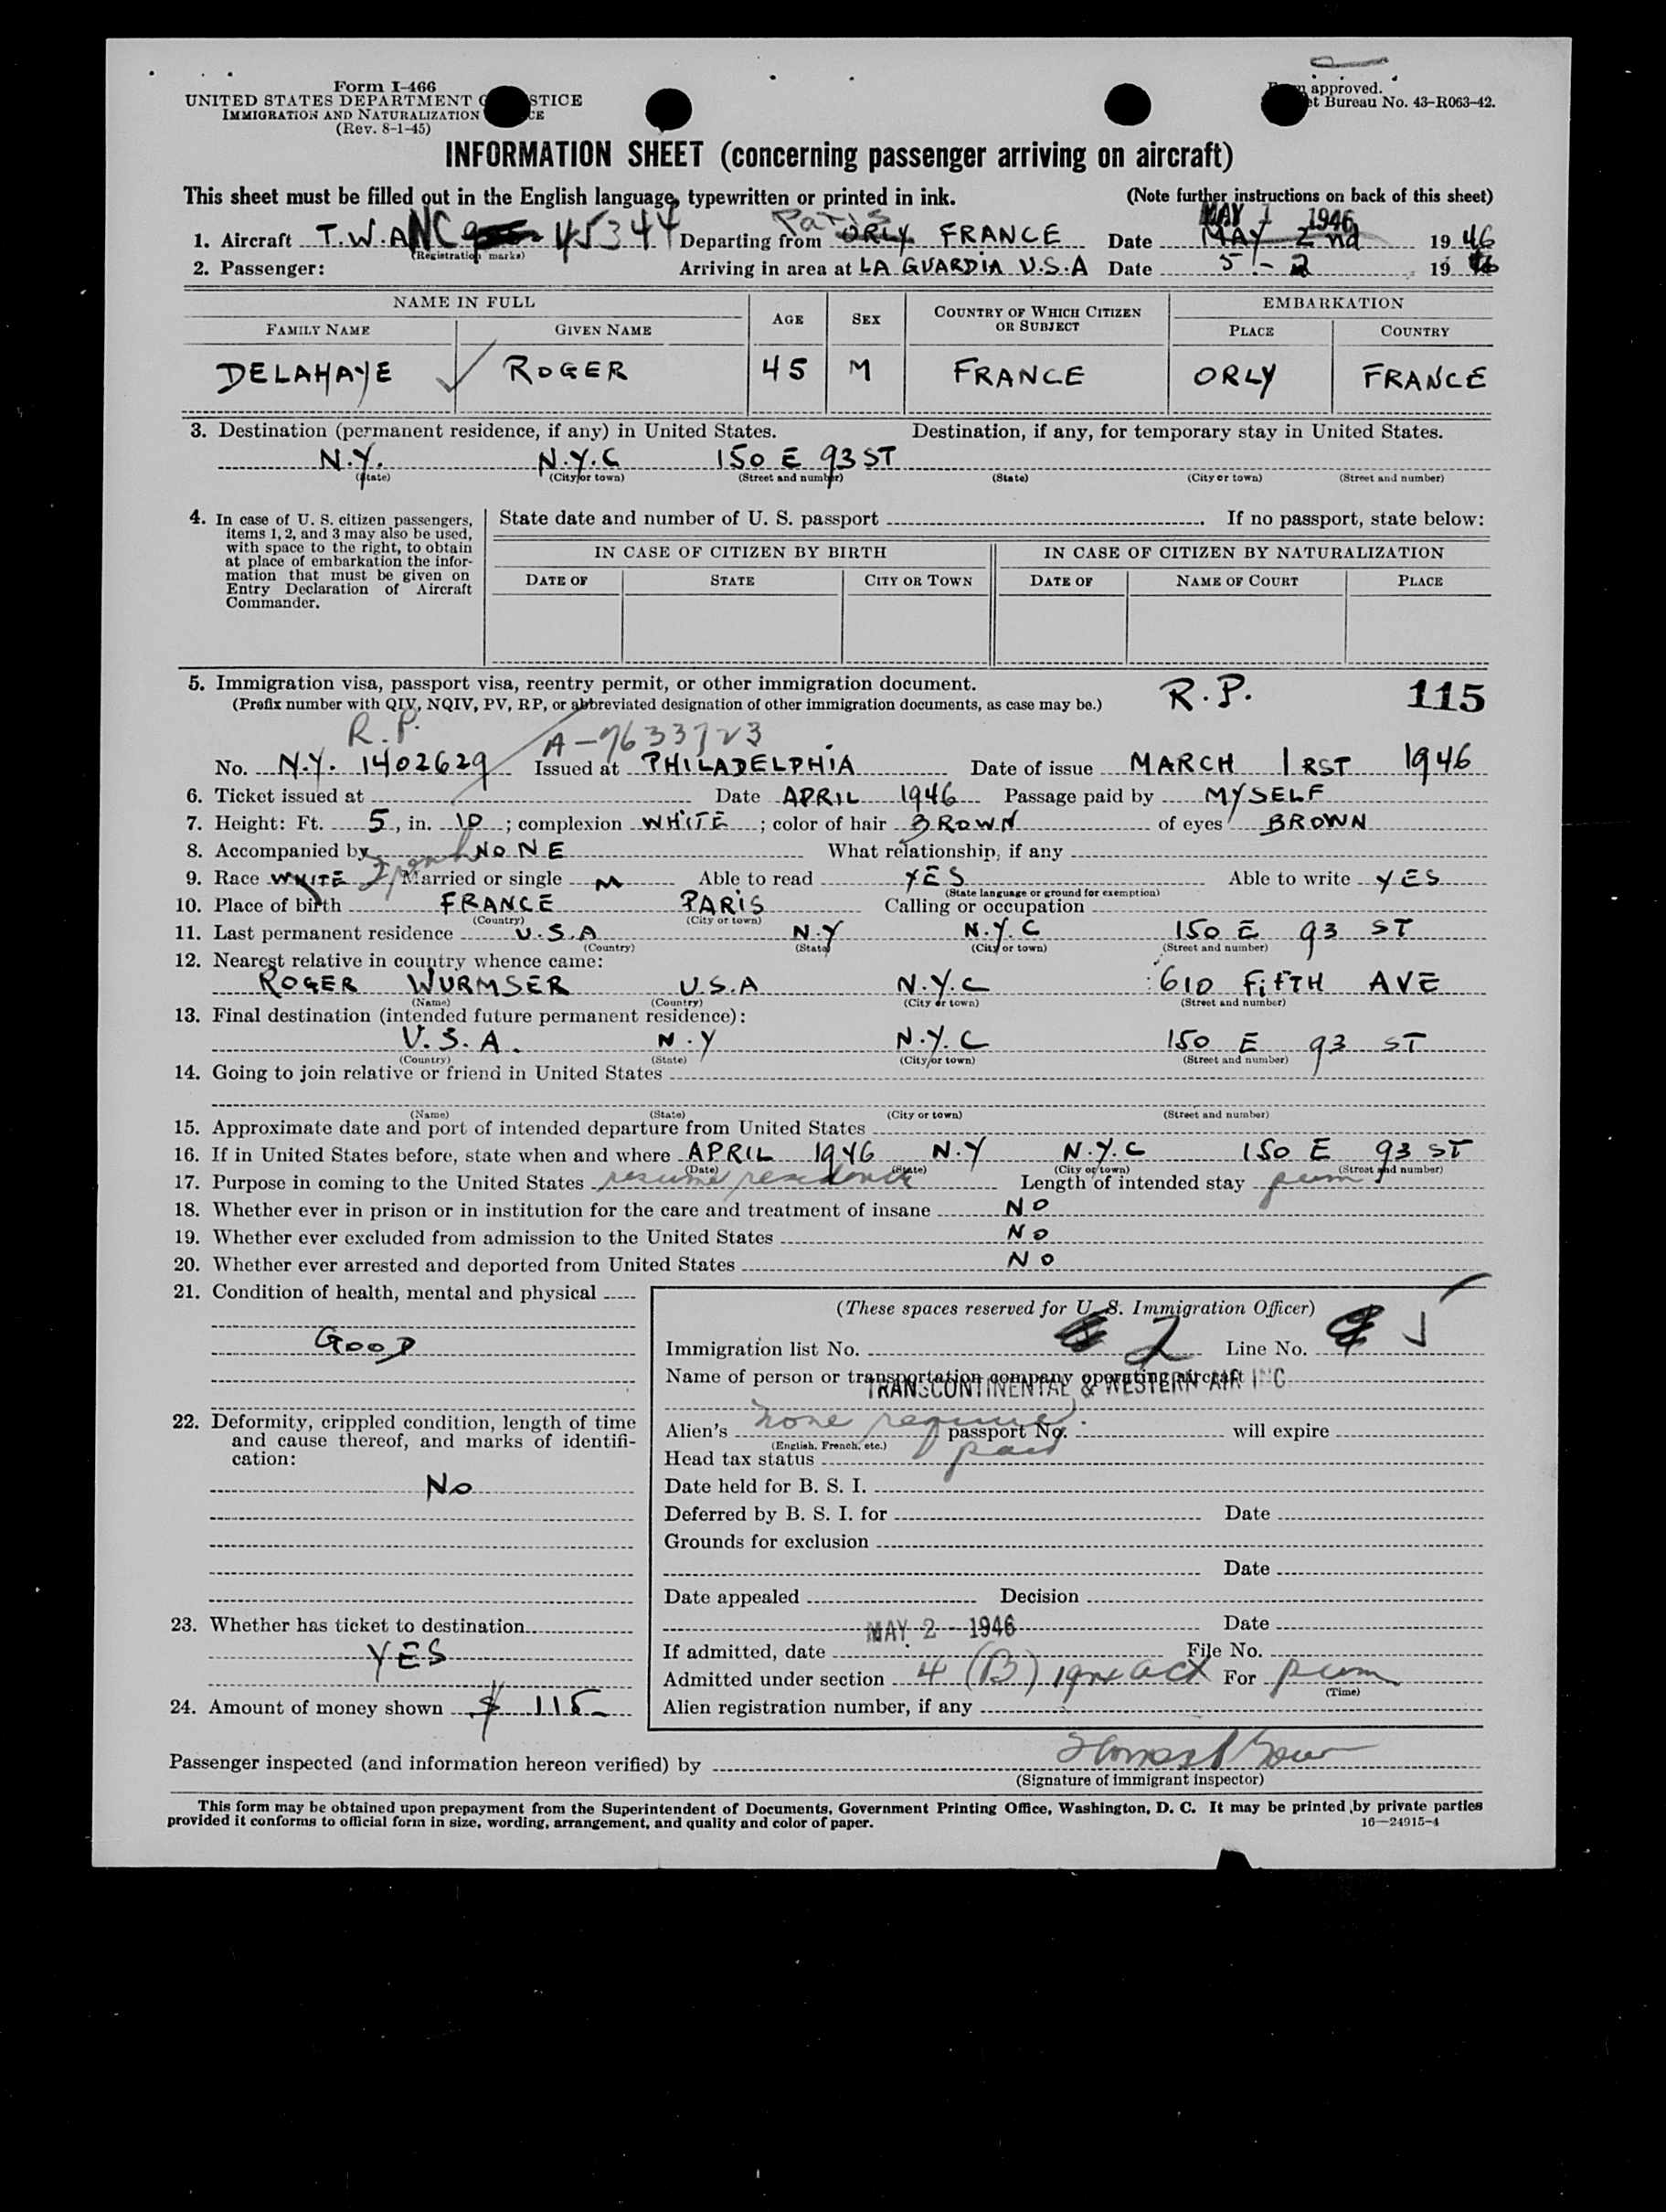 Form I-466
UNITED STATES DEPARTMENT STICE
IMMIGRATION AND NATURALIZATION CE
(Rev. 8-1-45)
approved.
et Bureau No. 43-R063-42.
INFORMATION SHEET (concerning passenger arriving on aircraft)
This sheet must be filled out in the English language, typewritten or printed in ink. (Note further instructions on back of this sheet)
Paris MAY 1 1946
1. Aircraft T.W.A NC 45344 Departing from ORLY FRANCE Date MAY 2nd 1946
(Registration marks)
2. Passenger: Arriving in area at LA GUARDIA U.S.A Date 5 - 2 19 46
NAME IN FULL AGE SEX COUNTRY OF WHICH CITIZEN OR SUBJECT EMBARKATION
FAMILY NAME GIVEN NAME PLACE COUNTRY
DELAHAYE ROGER 45 M FRANCE ORLY FRANCE
3. Destination (permanent residence, if any) in United States. Destination, if any, for temporary stay in United States.
N.Y. N.Y.C 150 E 93 ST
(State) (City or town) (Street and number) (State) (City or town) (Street and number)
4. In case of U. S. citizen passengers, items 1, 2, and 3 may also be used, with space to the right, to obtain at place of embarkation the information that must be given on Entry Declaration of Aircraft Commander.
State date and number of U. S. passport . If no passport, state below:
IN CASE OF CITIZEN BY BIRTH IN CASE OF CITIZEN BY NATURALIZATION
DATE OF STATE CITY OR TOWN DATE OF NAME OF COURT PLACE
5. Immigration visa, passport visa, reentry permit, or other immigration document. R.P. 115
(Prefix number with QIV, NQIV, PV, RP, or abbreviated designation of other immigration documents, as case may be.)
R.P.
No. N.Y. 1402629 Issued at PHILADELPHIA Date of issue MARCH 1RST 1946
6. Ticket issued at Date APRIL 1946 Passage paid by MYSELF
7. Height: Ft. 5, in. 10; complexion WHITE; color of hair BROWN of eyes BROWN
8. Accompanied by NONE What relationship, if any
9. Race WHITE Married or single M Able to read YES Able to write YES
(State language or ground for exemption)
10. Place of birth FRANCE PARIS Calling or occupation
(Country) (City or town)
11. Last permanent residence U.S.A N.Y N.Y.C 150 E 93 ST
(Country) (State) (City or town) (Street and number)
12. Nearest relative in country whence came:
ROGER WURMSER U.S.A N.Y.C 610 FiFTH AVE
(Name) (Country) (City or town) (Street and number)
13. Final destination (intended future permanent residence):
U.S.A. N.Y N.Y.C 150 E 93 ST
(Country) (State) (City or town) (Street and number)
14. Going to join relative or friend in United States
(Name) (State) (City or town) (Street and number)
15. Approximate date and port of intended departure from United States
16. If in United States before, state when and where APRIL 1946 N.Y N.Y.C 150 E 93 ST
(Date) (State) (City or town) (Street and number)
17. Purpose in coming to the United States resume residence Length of intended stay perm
18. Whether ever in prison or in institution for the care and treatment of insane NO
19. Whether ever excluded from admission to the United States NO
20. Whether ever arrested and deported from United States NO
21. Condition of health, mental and physical
GOOD
22. Deformity, crippled condition, length of time and cause thereof, and marks of identification:
No
23. Whether has ticket to destination
YES
24. Amount of money shown $ 115
(These spaces reserved for U. S. Immigration Officer)
Immigration list No. 2 Line No. 5
Name of person or transportation company operating aircraft
TRANSCONTINENTAL & WESTERN AIR INC
Alien's none required passport No. will expire
(English, French, etc.)
Head tax status paid
Date held for B. S. I.
Deferred by B. S. I. for Date
Grounds for exclusion
Date
Date appealed Decision
MAY 2 - 1946 Date
If admitted, date File No.
Admitted under section 4 (B) act For perm
(Time)
Alien registration number, if any
Passenger inspected (and information hereon verified) by
(Signature of immigrant inspector)
This form may be obtained upon prepayment from the Superintendent of Documents, Government Printing Office, Washington, D. C. It may be printed by private parties
provided it conforms to official form in size, wording, arrangement, and quality and color of paper. 16—24915-4